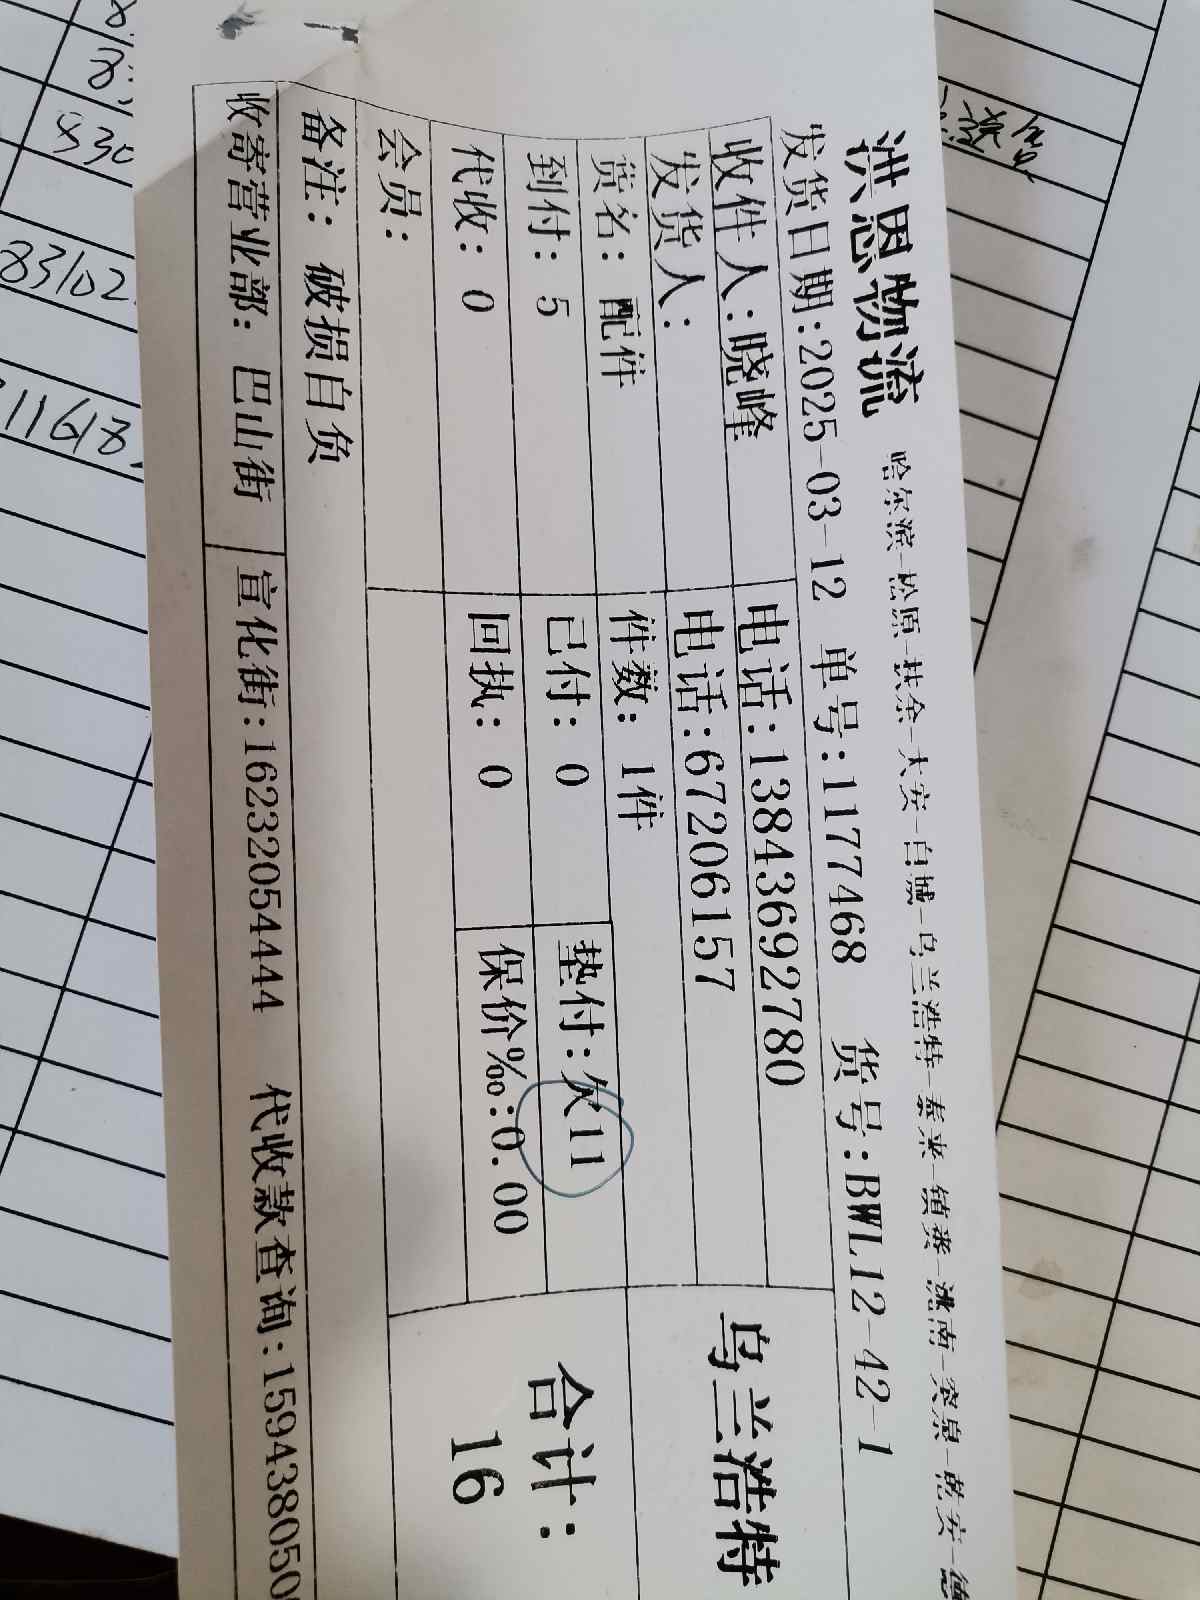 洪恩物流 哈尔滨-松原-扶余-大安-白城-乌兰浩特-泰来-镇赉-洮南-突泉-乾安-德
发货日期:2025-03-12 单号:1177468 货号:BWL12-42-1
收件人:晓峰 电话:13843692780
发货人: 电话:67206157
乌兰浩特
货名: 配件 件数: 1件
到付: 5 已付: 0 垫付:欠11
代收: 0 回执: 0 保价‰:0.00
合计:
16
会员:
备注: 破损自负
收寄营业部: 巴山街 宣化街:16232054444 代收款查询:159438050
830
83102
11618